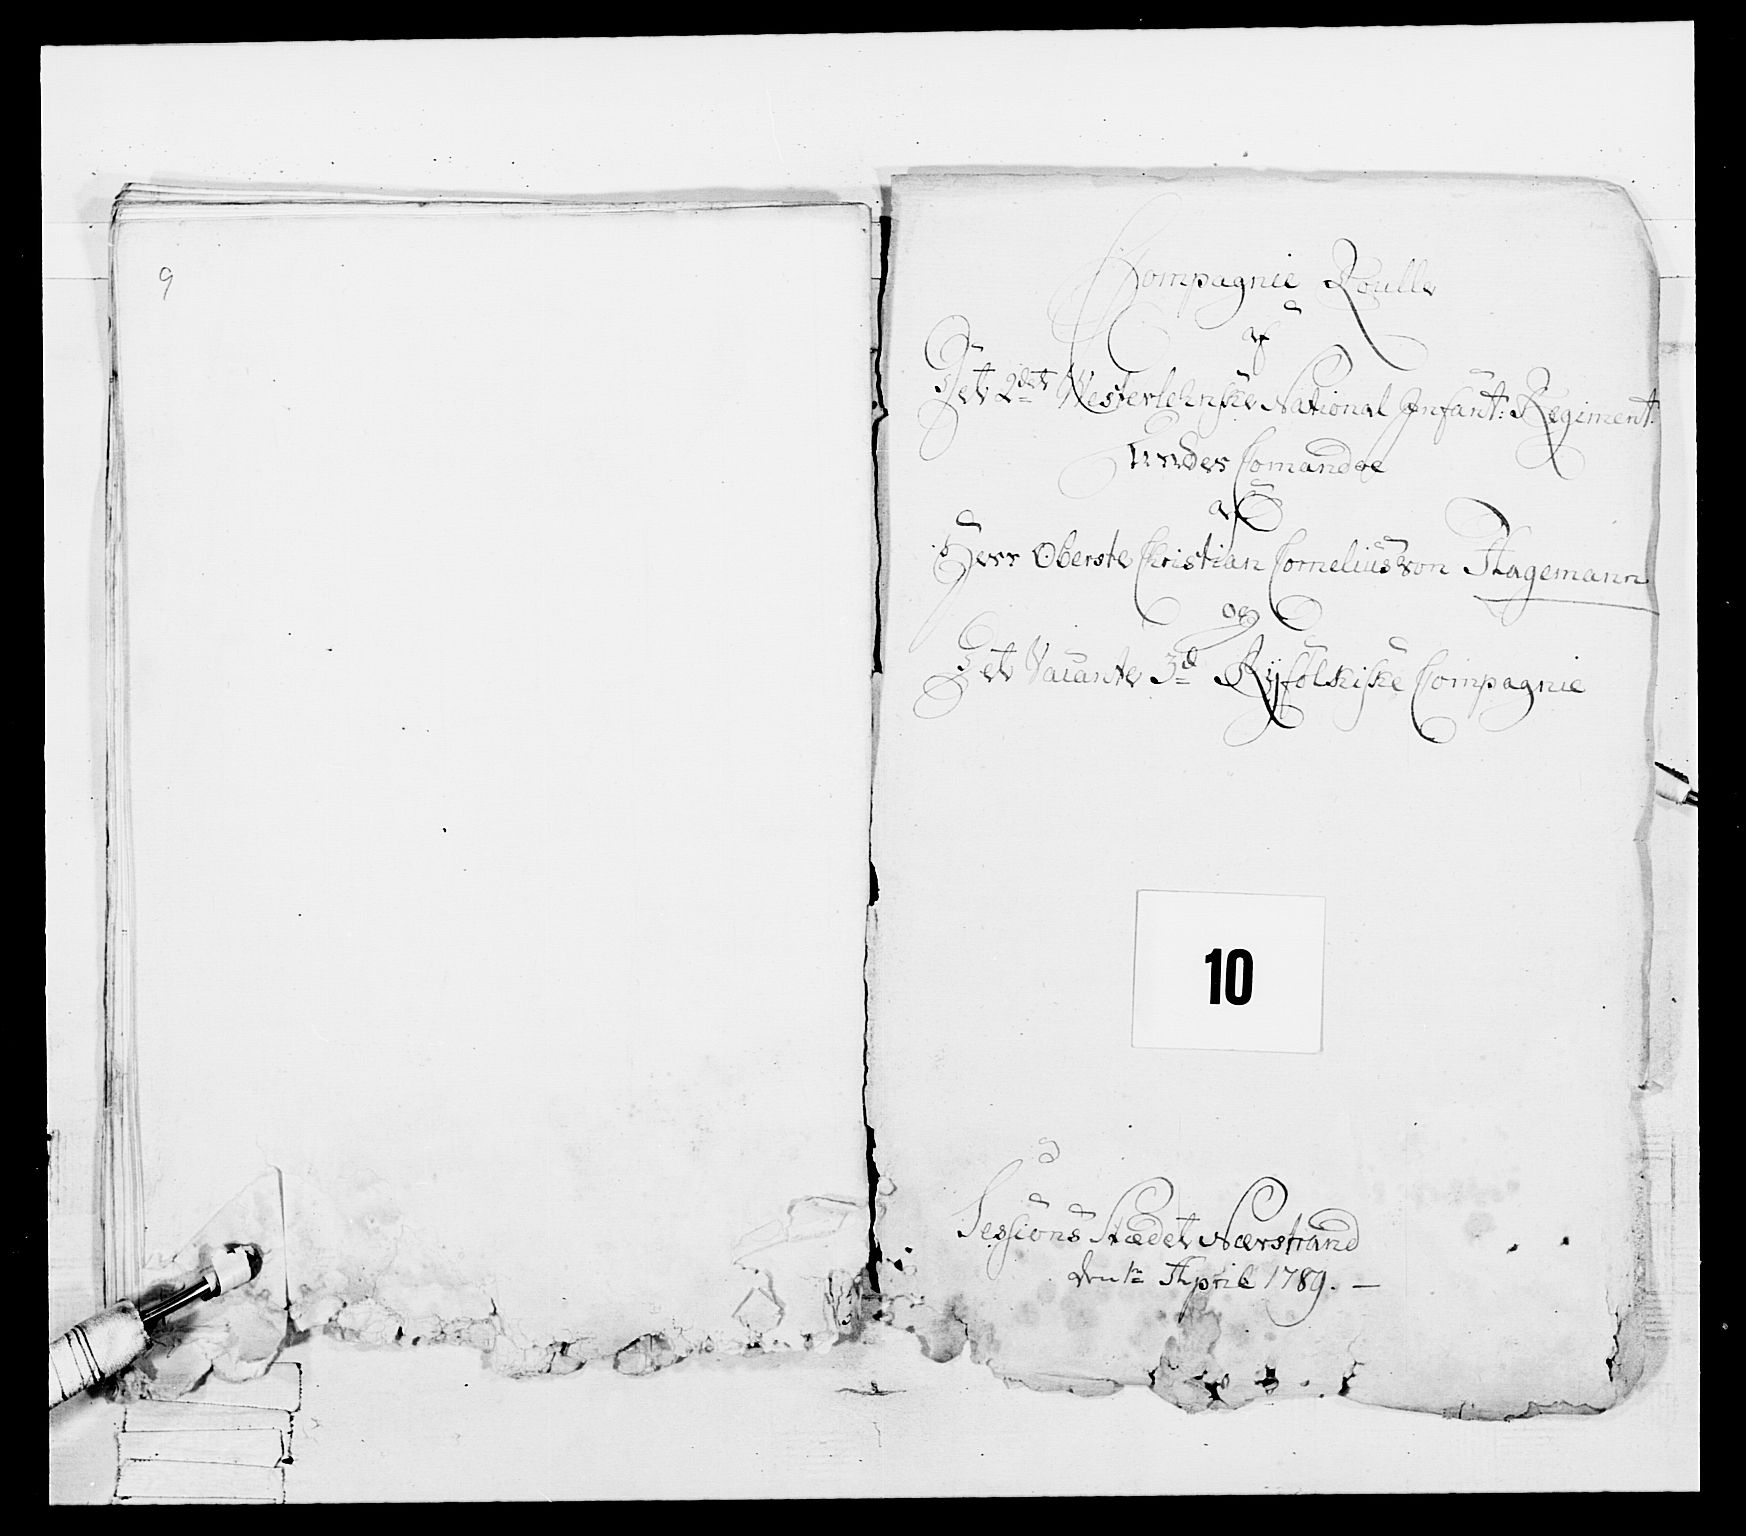 9
Compagnie Roulle
af
Det 2det Westerlehnske National Infant: Regiment
Under Comandoe
af
Herr Oberste Christian Cornelius von Hagemann
og
Det Vacante 3die Ryfölkiske Compagnie
10
Sessions Stædet Nærstrand
den 1te April 1789. —